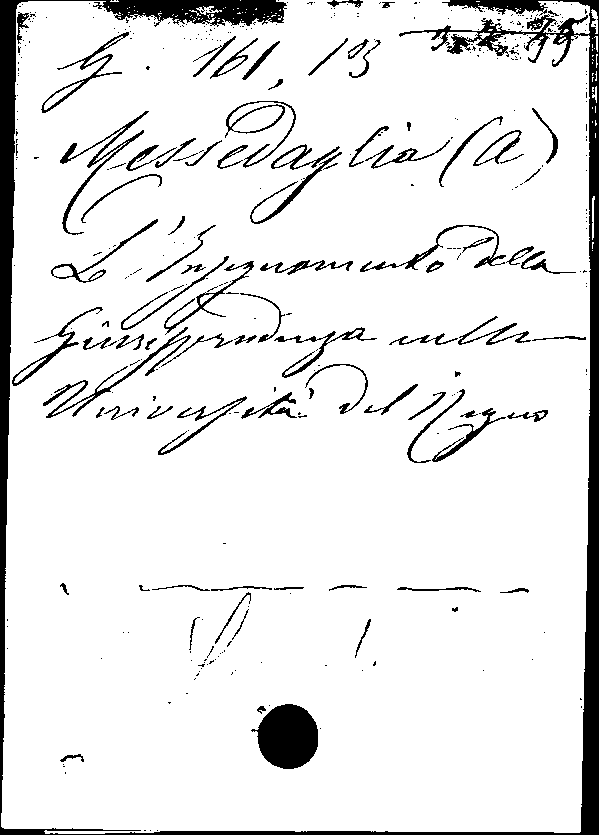 G. 161, 13
Messedaglia (A)
L'Insegnamento della
Giurisprudenza nelle
Università del Regno